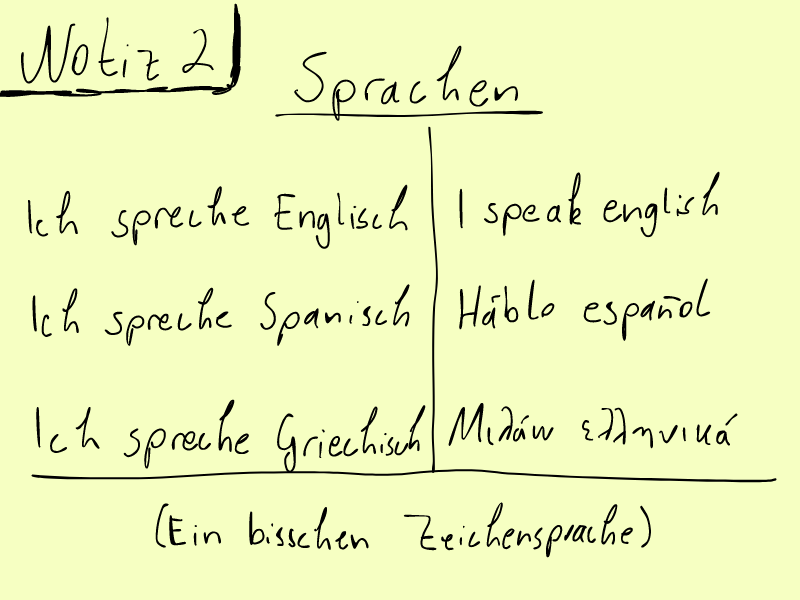 Notiz 2
Sprachen
Ich spreche Englisch | I speak english
Ich spreche Spanisch | Háblo español
Ich spreche Griechisch | Μιλάω ελληνικά
(Ein bisschen Zeichensprache)